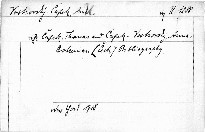 Vostrovský Čapek, Anna
vf. Čapek, Thomas and Čapek-Vostrovský, Anna
Bohemian (Čech) Bibliography
New York 1918